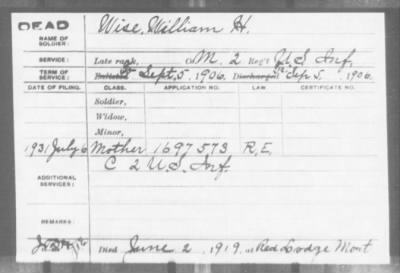 DEAD
NAME OF SOLDIER: Wise, William H.
SERVICE: Late rank, Co M. 2 Reg't U.S. Inf.
TERM OF SERVICE: Enlisted Sept. 5, 1906, Discharged Sep 5, 1906.
DATE OF FILING. CLASS. APPLICATION NO. LAW. CERTIFICATE NO.
Soldier,
Widow,
Minor,
1931 July 6 Mother 1697573 R.E.
ADDITIONAL SERVICES: C 2 U.S. Inf.
REMARKS:
Died June 2, 1919, at Red Lodge Mont